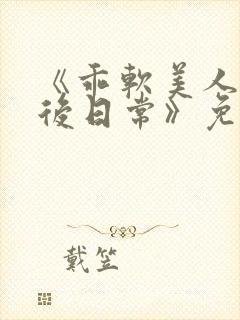 《乖軟美人
後日常》免
戴笠